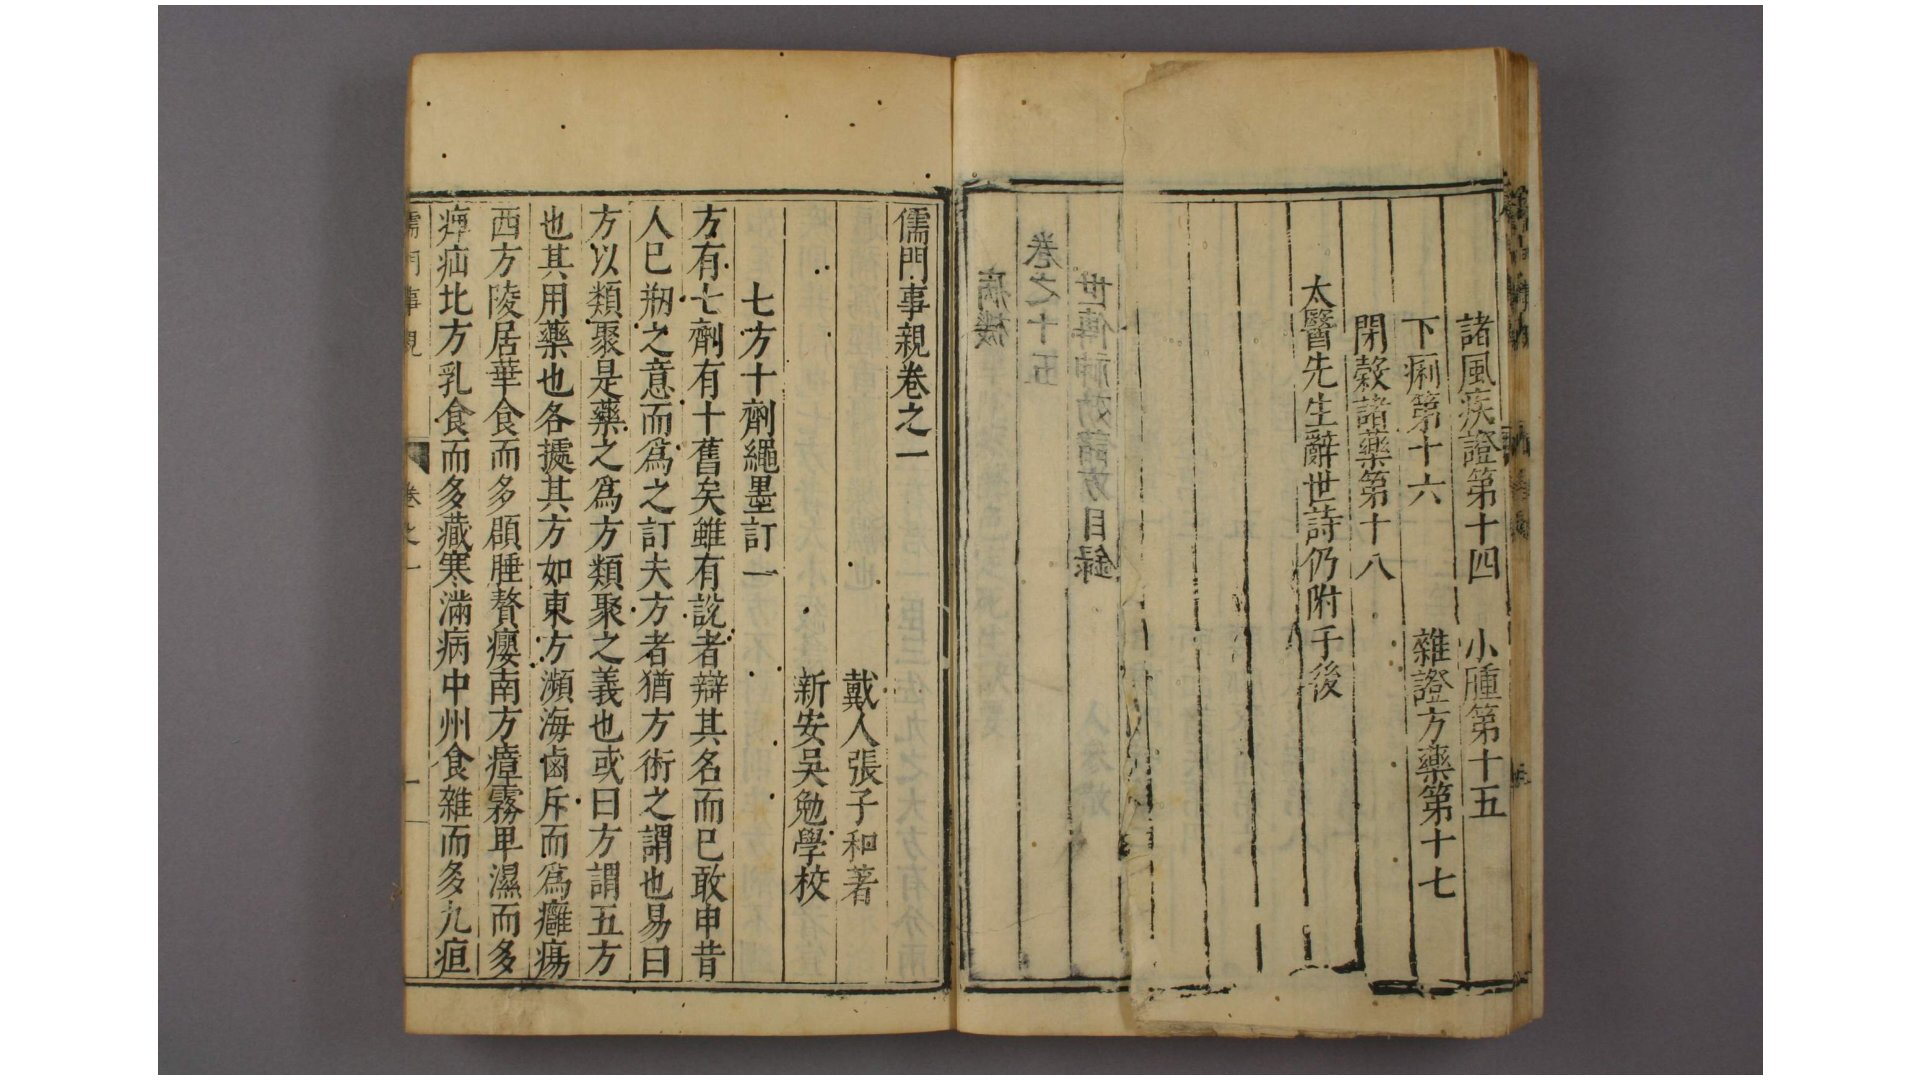 諸風疾證第十四 小腫第十五
下痢第十六 雜證方藥第十七
閉穀諸藥第十八
太醫先生辭世詩仍附于後
儒門事親卷之一
戴人張子和著
新安吳勉學校
七方十劑繩墨訂一
方有七劑有十舊矣雖有說者辯其名而已敢申昔
人已剏之意而爲之訂夫方者猶方術之謂也易曰
方以類聚是藥之爲方類聚之義也或曰方謂五方
也其用藥也各據其方如東方瀕海鹵斥而爲癰瘍
西方陵居華食而多頎腄贅癭南方瘴霧卑濕而多
痹疝北方乳食而多藏寒滿病中州食雜而多九疸
儒門事親 卷之一 一